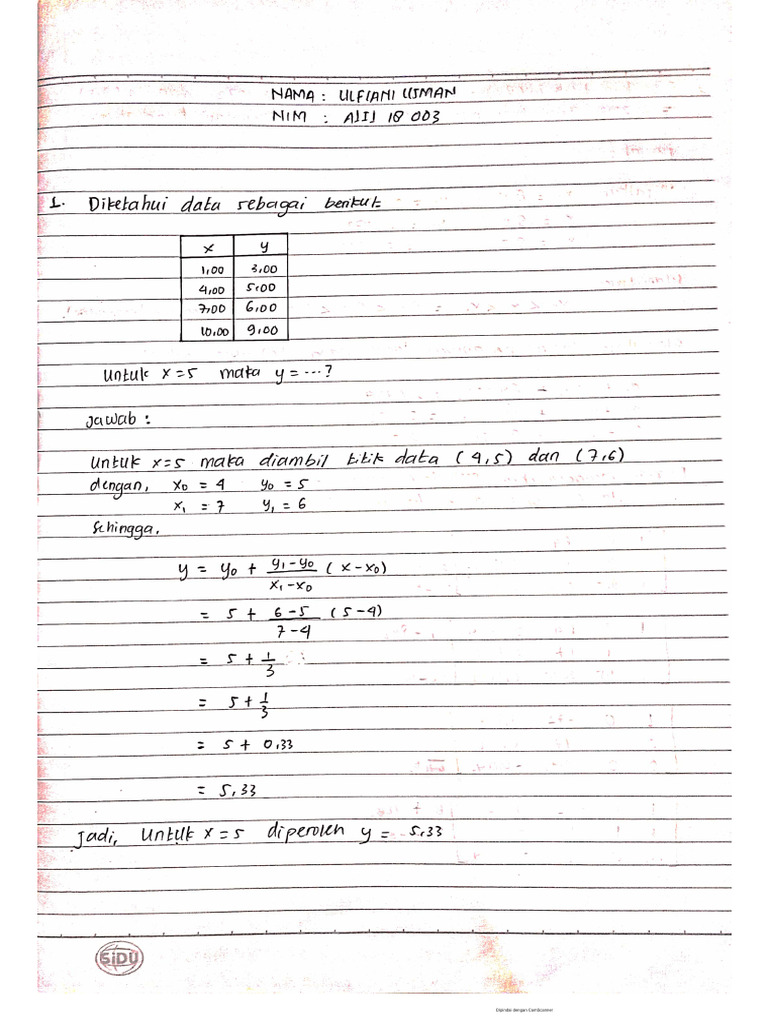 NAMA : ULFIANI USMAN
NIM : A1I1 18 003
1. Diketahui data sebagai berikut
x y
1,00 3,00
4,00 5,00
7,00 6,00
10,00 9,00
Untuk x=5 maka y= ...?
Jawab :
Untuk x=5 maka diambil titik data (4,5) dan (7,6)
dengan, x₀ = 4 y₀ = 5
x₁ = 7 y₁ = 6
Sehingga,
y = y₀ + (y₁-y₀)/(x₁-x₀) (x-x₀)
= 5 + (6-5)/(7-4) (5-4)
= 5 + 1/3
= 5 + 1/3
= 5 + 0,33
= 5,33
Jadi, Untuk x=5 diperoleh y = 5,33
SiDU
Dipindai dengan CamScanner